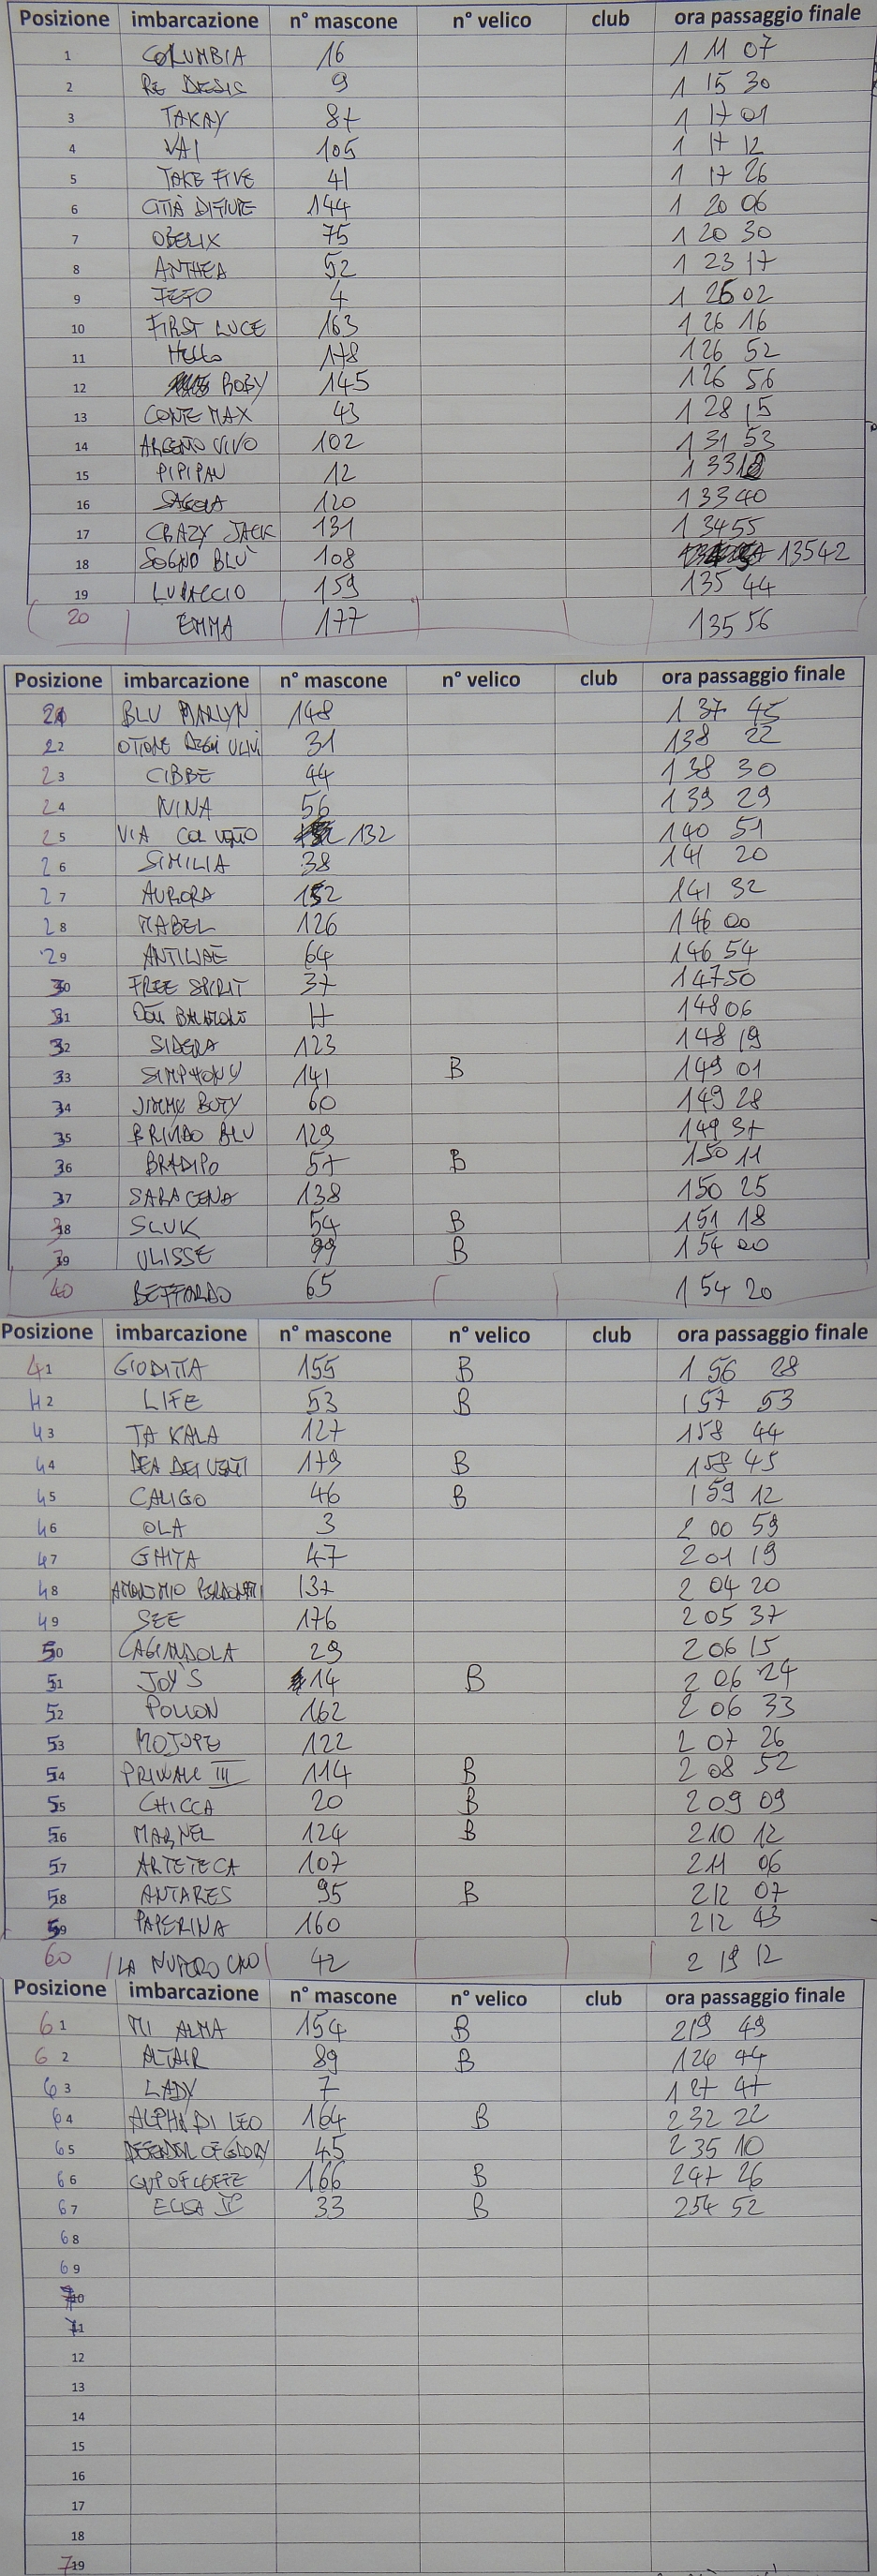 Posizione imbarcazione n° mascone n° velico club ora passaggio finale
1 COLUMBIA 16 1 11 07
2 RE DESIC 9 1 15 30
3 TAKAY 87 1 17 01
4 VAI 105 1 17 12
5 TAKE FIVE 41 1 17 26
6 CITTÀ DI FIUME 144 1 20 06
7 OBELIX 75 1 20 30
8 ANTHEA 52 1 23 17
9 4 1 26 02
10 FIRST LUCE 163 1 26 16
11 Hello 178 1 26 52
12 ROBY 145 1 26 56
13 CONTE MAX 43 1 28 15
14 ARGENTO VIVO 102 1 31 53
15 PIPIPAU 12 1 33 18
16 SAGOLA 120 1 33 40
17 CRAZY JACK 131 1 34 55
18 SOGNO BLU` 108 1 35 42
19 LUPACCIO 159 1 35 44
20 EMMA 177 1 35 56
Posizione imbarcazione n° mascone n° velico club ora passaggio finale
21 BLU MARLYN 148 1 37 45
22 31 1 38 22
23 CIBBE 44 1 38 30
24 NINA 56 1 39 29
25 VIA COL VENTO 132 1 40 51
26 SIMILIA 38 1 41 20
27 AURORA 152 1 41 32
28 MABEL 126 1 46 00
29 64 1 46 54
30 FREE SPIRIT 37 1 47 50
31 17 1 48 06
32 SIDERA 123 1 48 19
33 SIMPHONY 141 B 1 49 01
34 JIMMY BOTY 60 1 49 28
35 BRIVIDO BLU 129 1 49 37
36 BRADIPO 57 B 1 50 11
37 SARACENO 138 1 50 25
38 SLUK 54 B 1 51 18
39 ULISSE 99 B 1 54 00
40 BEFFARDO 65 1 54 20
Posizione imbarcazione n° mascone n° velico club ora passaggio finale
41 GIODITTA 155 B 1 56 28
42 LIFE 53 B 1 57 53
43 TA KALA 127 1 58 44
44 DEA DEI VENTI 179 B 1 58 45
45 CALIGO 46 B 1 59 12
46 OLA 3 2 00 59
47 GHITA 47 2 01 19
48 137 2 04 20
49 SEE 176 2 05 37
50 29 2 06 15
51 JOY'S 14 B 2 06 24
52 POLLON 162 2 06 33
53 MOJOPE 122 2 07 26
54 114 B 2 08 52
55 CHICCA 20 B 2 09 09
56 MARNEL 124 B 2 10 12
57 ARTETECA 107 2 11 06
58 ANTARES 95 B 2 12 07
59 PAPERINA 160 2 12 43
60 LA NUMERO UNO 42 2 19 12
Posizione imbarcazione n° mascone n° velico club ora passaggio finale
61 MI ALMA 154 B 2 19 49
62 ALTAIR 89 B 1 26 44
63 LADY 7 1 27 47
64 ALPHA DI LEO 164 B 2 32 22
65 DEFENDER OF GLORY 45 2 35 10
66 166 B 2 47 26
67 ELISA II° 33 B 2 54 52
68
69
70
71
12
13
14
15
16
17
18
719